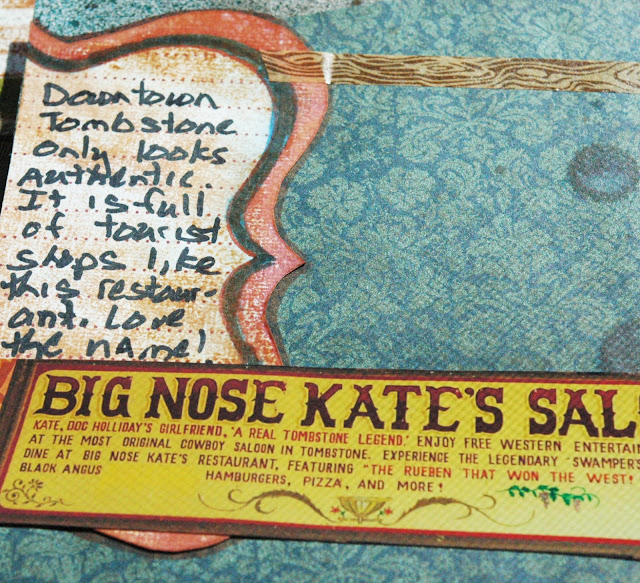 Downtown
Tombstone
only looks
Authentic.
It is full
of tourist
shops like
this restaur-
ant. Love
the name!
BIG NOSE KATE'S
KATE, DOC HOLLIDAY'S GIRLFRIEND, 'A REAL TOMBSTONE LEGEND.' ENJOY FREE WESTERN
AT THE MOST ORIGINAL COWBOY SALOON IN TOMBSTONE. EXPERIENCE THE LEGENDARY
DINE AT BIG NOSE KATE'S RESTAURANT, FEATURING "THE RUEBEN THAT WON THE WEST!
BLACK ANGUS HAMBURGERS, PIZZA, AND MORE!